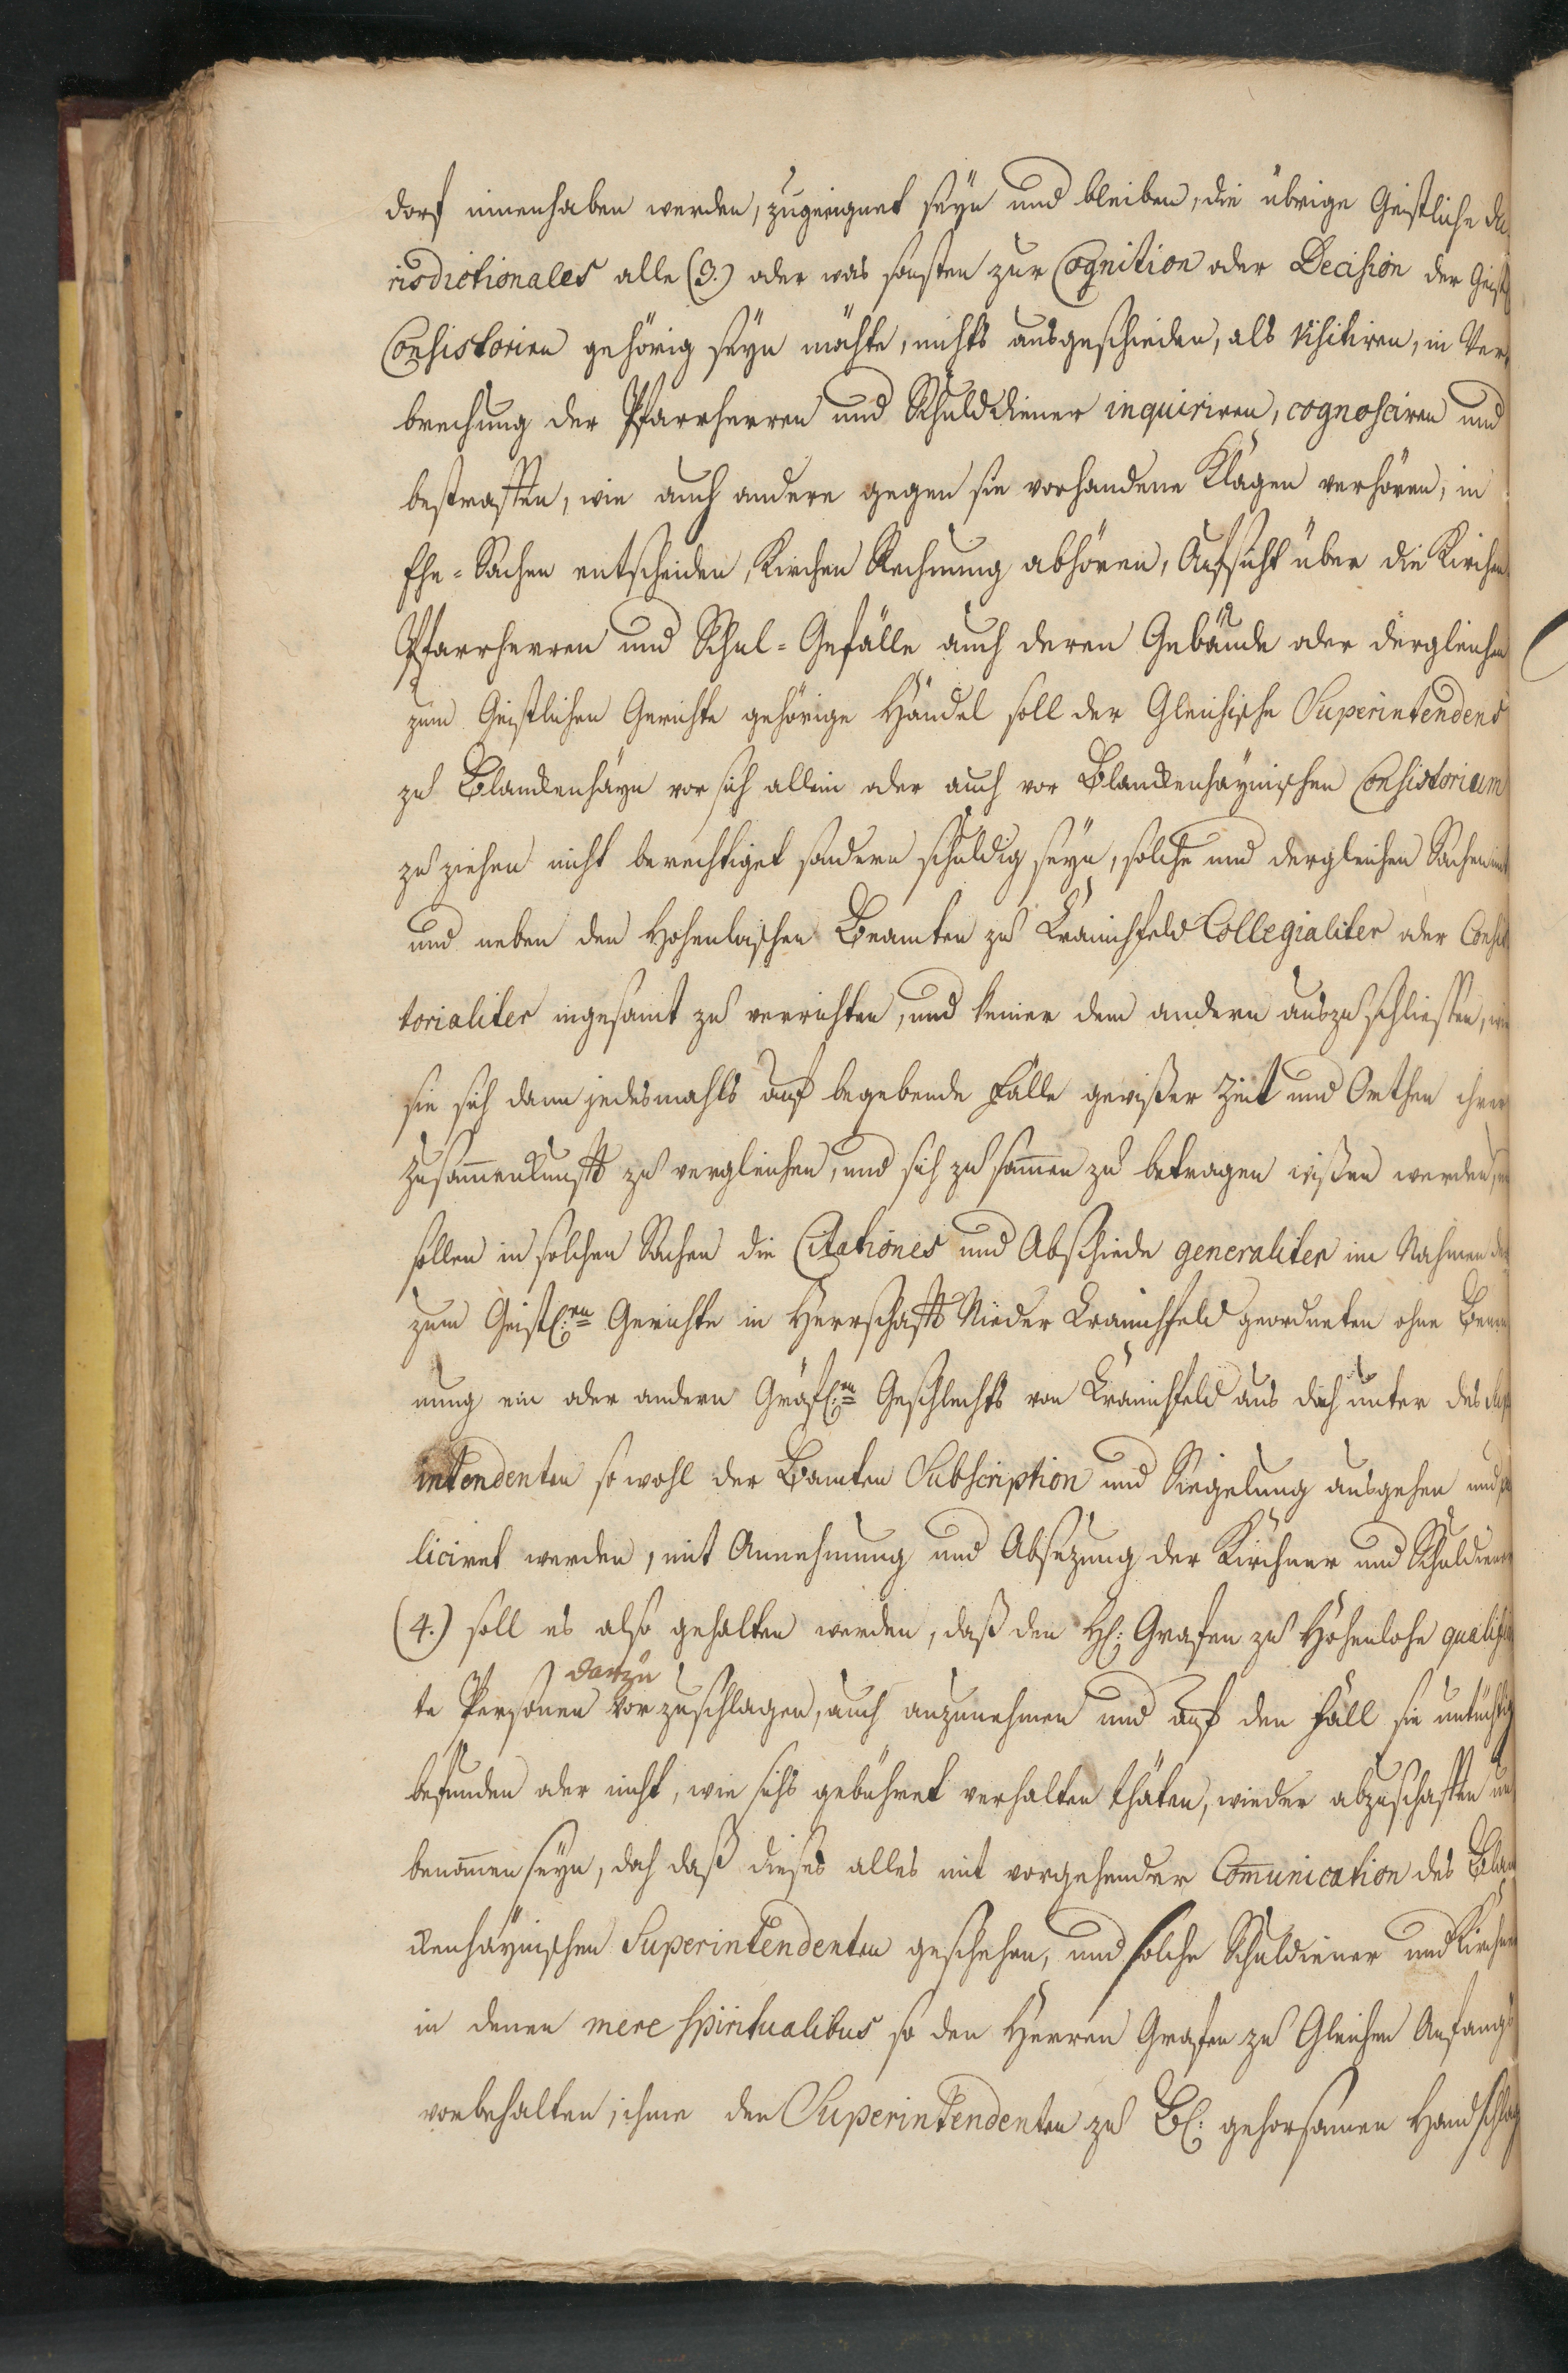 dorf innenhaben werden, zugeeignet seyn und bleiben, die übrige Geistliche Ju
risdictionales alle (3.) oder was sonsten zur Cognition oder Decision der Geistl
Consistorien gehörig seyn möchte, nichts ausgeschieden, als visitiren, in Ver,
brechung der Pfarrherren und Schuldiener inquiriren, cognosciren und
bestraffen, wie auch andere gegen sie vorhandene Klagen verhören, in
Ehe-Sachen entscheiden, Kirchen Rechnung abhören, Aufsicht über die Kirchen
Pfarrherren und Schul-Gefälle auch deren Gebäude oder dergleichen
zum Geistlichen Gerichte gehörige Händel soll der Gleichische Superintendens
zu Blanckenhayn vor sich allein oder auch vor Blanckenhaynischen Consistorium
zu ziehen nicht berechtiget sondern schuldig seyn, solche und dergleichen Sachen mit
und neben den Hohenloischen Beamten zu Kranichfeld Collegialiter oder Consis
torialiter ingesamt zu verrichten, und keiner dem andern auszuschliessen, wie
sie sich dann jedesmahls auf begebende Fälle gewißer Zeit und Orthen ihrer
Zusammenkunfft zu vergleichen, und sich zusammen zu betragen wißen werden,
sollen in solchen Sachen die Citationes und Abschiede generaliter im Nahmen der
zum Geistl:en Gerichte in Herrschafft Nieder Kranichfeld geordneten ohne Benen
nung ein oder andern Gräfl:en Geschlechts von Kranichfeld aus doch unter des
intendenten so wohl der Beamten Subscription und Siegelung ausgehen und
liciret werden, mit Annehmung und Absezung der Kirchner und Schuldiener
(4.) soll es also gehalten werden, daß den H: Grafen zu Hohenlohe qualifici
te Personen darzu vorzuschlagen, auch anzunehmen und auf den Fall sie untüchtig
befunden oder nicht, wie sichs gebühret verhalten thäten, wieder abzuschaffen un
benommen seyn, doch daß dieses alles mit vorgehender Communication des Blan
ckenhaynischen Superintendenten geschehen, und solche Schuldiener und Kirchner
in denen mere spiritualibus so den Herren Grafen zu Gleichen Anfangs
vorbehalten, ihme den Superintendenten zu Bl: gehorsamen Handschlag